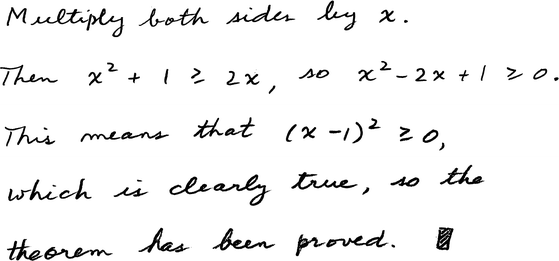 Multiply both sides by x.
Then x² + 1 ≥ 2x, so x² - 2x + 1 ≥ 0.
This means that (x - 1)² ≥ 0,
which is clearly true, so the
theorem has been proved. ∎